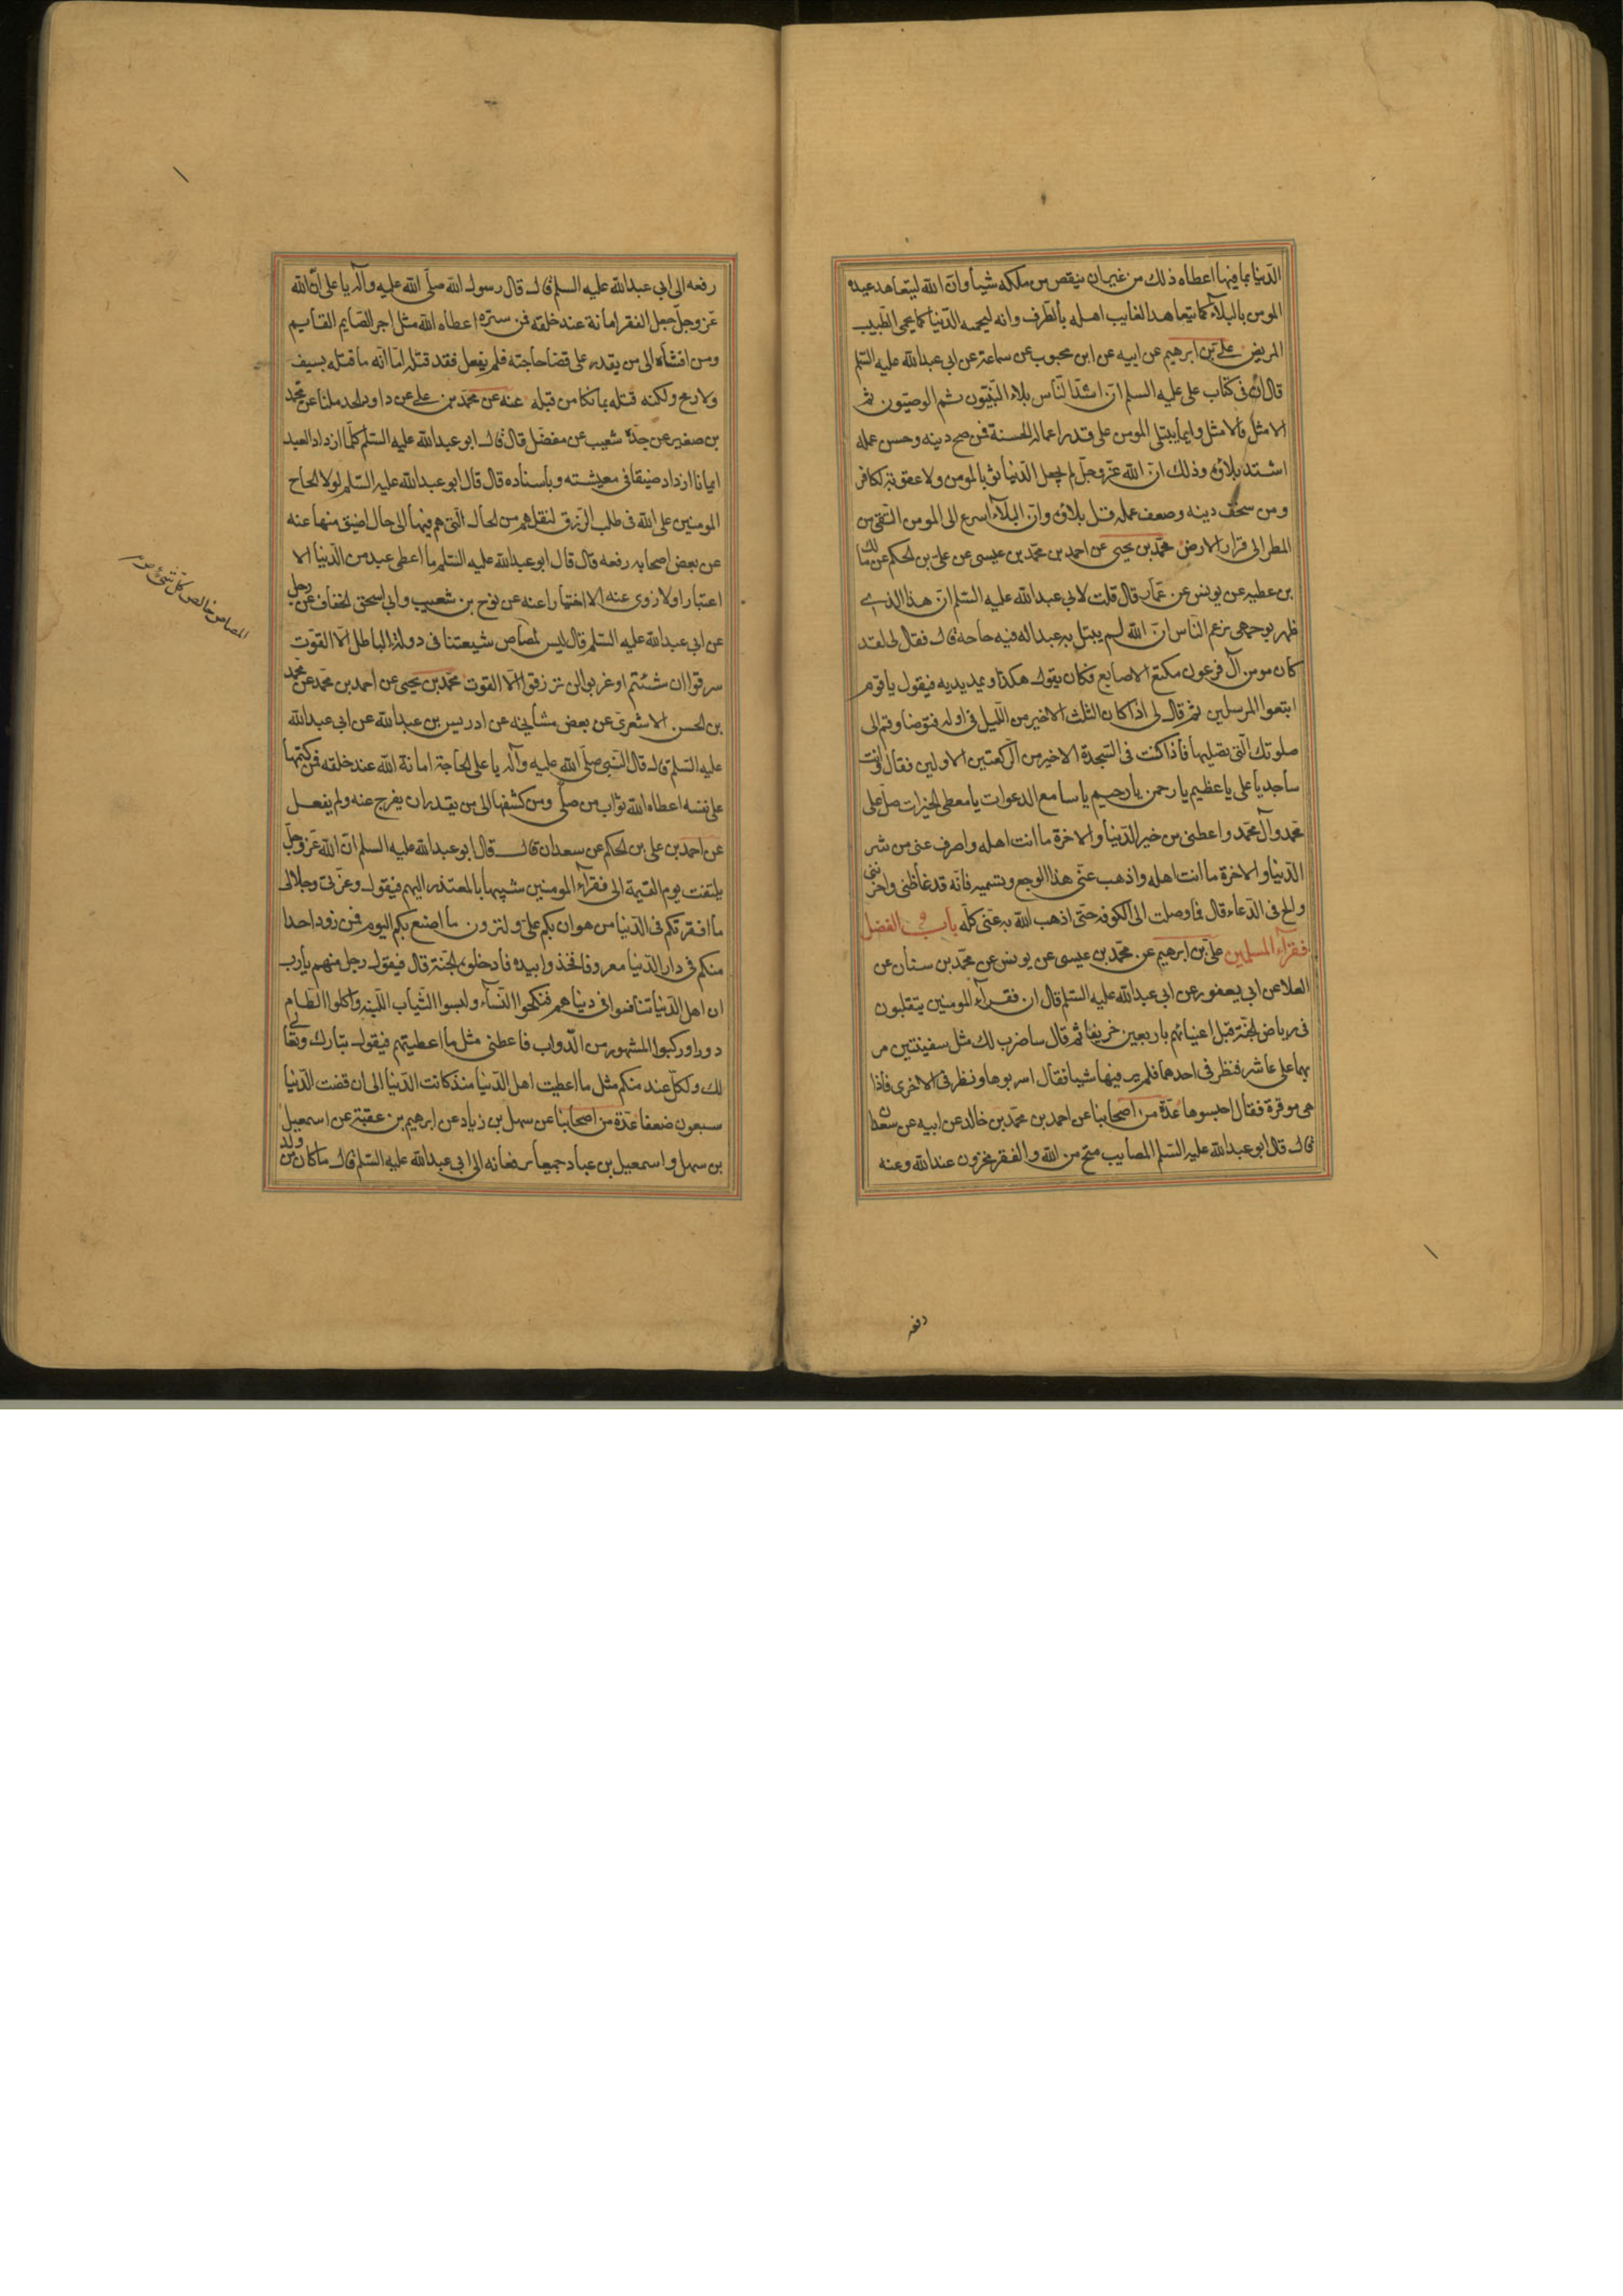 الدّنيا بما فيها اعطاه ذلك من غير ان ينقص من ملكه شيأ وانّ الله ليتعاهد عبده
المومن بالبلاء كما يتعاهد الغايب اهله بالطرف وانه ليحميه الدّنيا كما يحمى الطبيب
المريض علي بن ابرهيم عن ابيه عن ابن محبوب عن سماعة عن ابى عبدالله عليه السّلم
قال انّ فى كتاب على عليه السلم انّ اشدّ النّاس بلاء النّبيّون ثم الوصيّون ثم
الامثل فالامثل وانما يبتلى المومن على قدر اعماله الحسنة فمن صح دينه وحسن عمله
اشتدّ بلاؤه وذلك انّ الله عزّ وجلّ لم يجعل الدّنيا ثوابا لمومن ولا عقوبة لكافر
ومن سخف دينه وضعف عمله قل بلاؤه وانّ البلاء اسرع الى المومن التقى من
المطر الى قرار الارض محمّد بن يحيى عن احمد بن محمّد بن عيسى عن علىّ بن الحكم عن مالك
بن عطيه عن يونس بن عمّار قال قلت لابى عبدالله عليه السّلم انّ هذا الذى
ظهر بوجهى يزعم النّاس انّ الله لم يبتل به عبدا له فيه حاجه قال فقال لى لقد
كان مومن آل فرعون مكنّع الاصابع فكان يقول هكذا ويمدّ يديه فيقول يا قوم
اتبعوا المرسلين ثم قال لى اذا كان الثلث الاخير من اللّيل فى اوله فتوضا وقم الى
صلوتك الّتى تصليها فاذا كنت فى السّجدة الاخير من الرّكعتين الاولين فقل وانت
ساجد يا على يا عظيم يا رحمن يا رحيم يا سامع الدعوات يا معطى الخيرات صلّ على
محمّد وآل محمّد واعطنى من خير الدّنيا والاخرة ما انت اهله واصرف عنى من شر
الدّنيا والاخرة ما انت اهله واذهب عنّى هذا الوجع وتسميه فانّه قد غاظنى واحزننى
والح فى الدّعاء قال فما وصلت الى الكوفه حتّى اذهب الله به عنّى كلّه باب الفضل
فقراء المسلمين علىّ بن ابرهيم عن محمّد بن عيسى عن يونس عن محمّد بن سنان عن
العلا عن ابى يعفور عن ابى عبدالله عليه السّلم قال ان فقراء المومنين يتقلبون
فى رياض الجنّة قبل اغنيائهم باربعين خريفا ثم قال ساضرب لك مثل سفينتين مر
بهما على عاشر فنظر فى احدهما فلم ير فيها شيا فقال اسربوها ونظر فى الاخرى فاذا
هى موقرة فقال احبسوها عدّة من اصحابنا عن احمد بن محمّد بن خالد عن ابيه عن سعدان
قال قال ابو عبدالله عليه السّلم المصايب منح من الله والفقر مخزون عندالله وعنه
رفعه
رفعه الى ابى عبدالله عليه السلم قال قال رسول الله صلّى الله عليه وآله يا على انّ الله
عزّ وجلّ جعل الفقر امانة عند خلقه فمن ستره اعطاه الله مثل اجر الصّايم القايم
ومن افشاه الى من يقدر على قضا حاجته فلم يفعل فقد قتله امّا انّه ما قتله بسيف
ولا رمح ولكنه قتله بما نكا من قبله عنه عن محمّد بن على عن داود الحذا عن محمّد
بن صغير عن جدّه شعيب عن مفضّل قال قال ابو عبدالله عليه السّلم كلّما ازداد العبد
ايمانا ازداد ضيقا فى معيشته وباسناده قال قال ابو عبدالله عليه السّلم لولا الحاح
المومنين على الله فى طلب الرّزق لنقلهم من الحال الّتى هم فيها الى حال اضيق منها عنه
عن بعض اصحابه رفعه قال قال ابو عبدالله عليه السّلم ما اعطى عبد من الدّنيا الا
اعتبارا ولا زوى عنه الا اختبارا عنه عن نوح بن شعيب وابى اسحق الخفاف عن رجل
عن ابى عبدالله عليه السّلم قال ليس لمصاص شيعتنا فى دولة الباطل الّا القوت
شرقوا ان شئتم او غربوا لن ترزقوا الّا القوت محمّد بن يحيى عن احمد بن محمّد عن محمّد
بن الحسن الاشعرى عن بعض مشايخه عن ادريس بن عبدالله عن ابى عبدالله
عليه السّلم قال قال النّبى صلّى الله عليه وآله يا على الحاجة امانة الله عند خلقه فمن كتمها
على نفسه اعطاه الله ثواب من صلّى ومن كشفها الى من يقدر ان يفرج عنه ولم يفعل
عن احمد بن على بن الحكم عن سعدان قال قال ابو عبدالله عليه السلم انّ الله عزّ وجلّ
يلتفت يوم القيمة الى فقراء المومنين شبيها بالمعتذر اليهم فيقول وعزّتى وجلالى
ما افقرتكم فى الدّنيا من هوان بكم علىّ ولترون ما اصنع بكم اليوم فمن زود احدا
منكم فى دار الدّنيا معروفا فخذوا بيده فادخلوه الجنّة قال فيقول رجل منهم يا رب
ان اهل الدّنيا تنافسوا فى دنياهم فنكحوا النّساء ولبسوا الثّياب اللّينه واكلوا الطّعام
دورا وركبوا المشهور من الدّواب فاعطنى مثل ما اعطيتهم فيقول تبارك وتعالى
لك ولكلّ عبد منكم مثل ما اعطيت اهل الدّنيا منذ كانت الدّنيا الى ان قضت الدّنيا
سبعون ضعفا عدّة من اصحابنا عن سهل بن زياد عن ابرهيم بن عقبة عن اسمعيل
بن سهل واسمعيل بن عباد جميعا يرفعانه الى ابى عبدالله عليه السّلم قال ما كان من ولد
المصاص خالص كل شئ